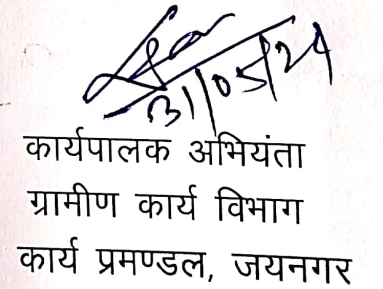 31/05/24
कार्यपालक अभियंता
ग्रामीण कार्य विभाग
कार्य प्रमण्डल, जयनगर